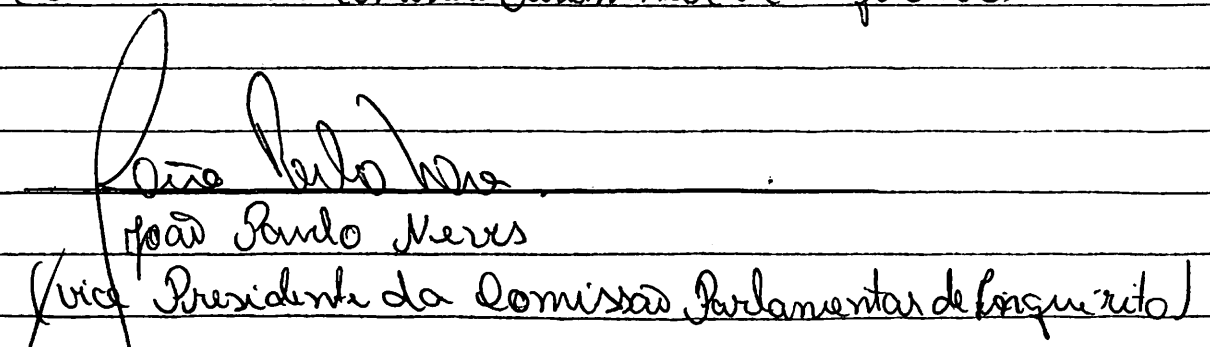 João Paulo Neves
João Paulo Neves
(vice Presidente da Comissão Parlamentar de Inquérito)